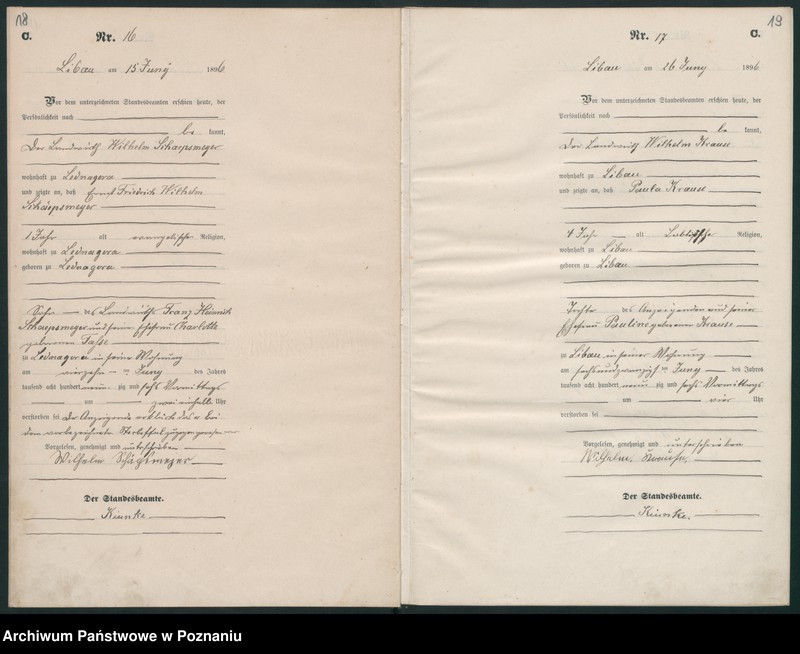 18
C.
Nr. 16
Libau am 15 Juny 1896
Vor dem unterzeichneten Standesbeamten erschien heute, der
Persönlichkeit nach
be kannt,
Der Landwirth Wilhelm Schaepsmeyer
wohnhaft zu Lednagora
und zeigte an, daß Ernst Friedrich Wilhelm
Schaepsmeyer
1 Jahr alt evangelischer Religion,
wohnhaft zu Lednagora
geboren zu Lednagora
Sohn des Landwirths Franz Heinrich
Schaepsmeyer und seiner Ehefrau Charlotte
geborenen
zu Lednagora in seiner Wohnung
am vierzehn ten Juny des Jahres
tausend acht hundert neun zig und sechs Vormittags
um zwei einhalb Uhr
verstorben sei Der Anzeigende erklärt daß er bei
dem vorbezeichneten Sterbefall zugegen gewesen
Vorgelesen, genehmigt und unterschrieben
Wilhelm
Der Standesbeamte.
Kiunke
19
C.
Nr. 17
Libau am 26 Juny 1896
Vor dem unterzeichneten Standesbeamten erschien heute, der
Persönlichkeit nach
be kannt,
Der Landwirth Wilhelm Krause
wohnhaft zu Libau
und zeigte an, daß Paula Krause
4 Jahr alt Religion,
wohnhaft zu Libau
geboren zu Libau
Tochter des Anzeigenden und seiner
Ehefrau Pauline geborenen Krause
zu Libau in seiner Wohnung
am sechsundzwanzigs ten Juny des Jahres
tausend acht hundert neun zig und sechs Vormittags
um vier Uhr
verstorben sei
Vorgelesen, genehmigt und unterschrieben
Wilhelm. Krause.
Der Standesbeamte.
Kiunke.
Archiwum Państwowe w Poznaniu